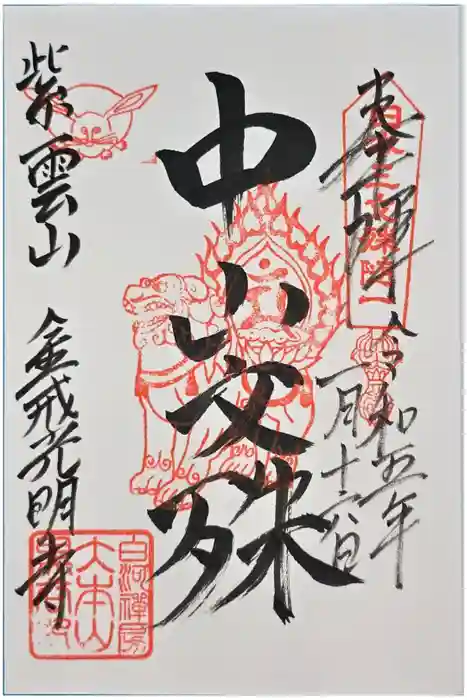 奉拝
令和五年
一月十三日
中山文殊
紫雲山 金戒光明寺
日本三文殊随一
白河禅房
大本山